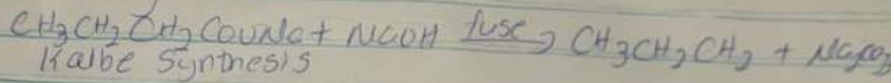 CH3CH2CH2COONa + NaOH fuse → CH3CH2CH2 + Na2CO3
Kalbe Synthesis